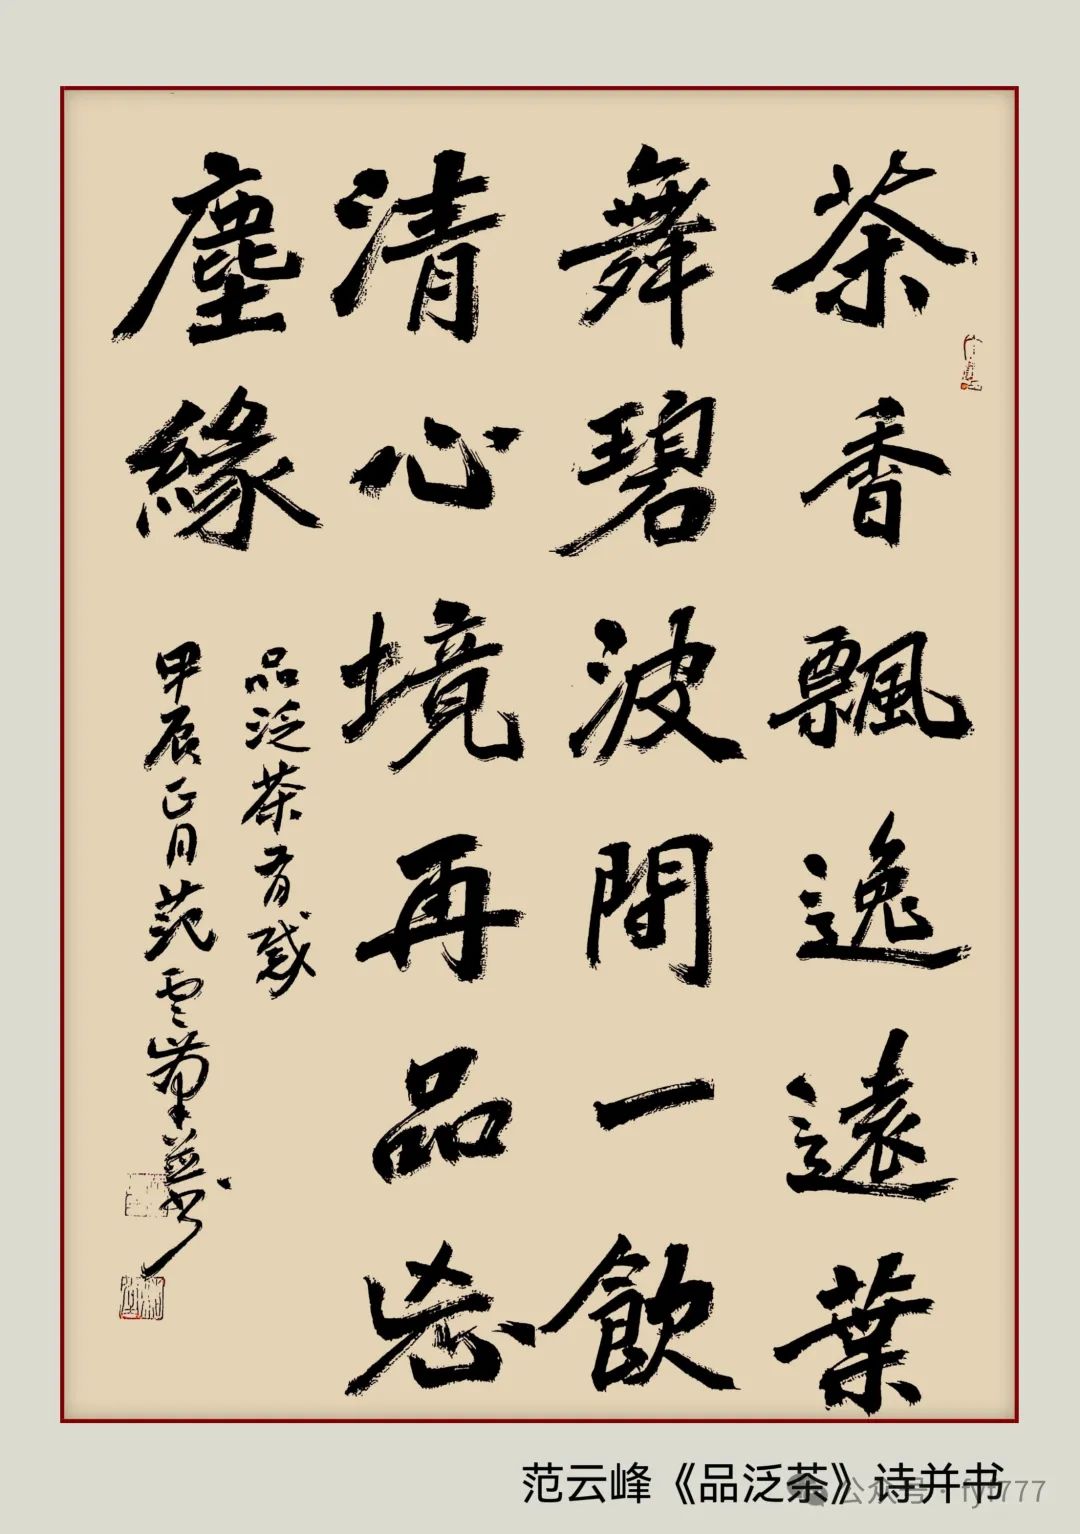 茶香飄逸遠葉
舞碧波間一飲
清心境再品忘
塵緣
品泛茶有感
甲辰正月范雲峯並書
范云峰《品泛茶》诗并书
公众号 · fyf777